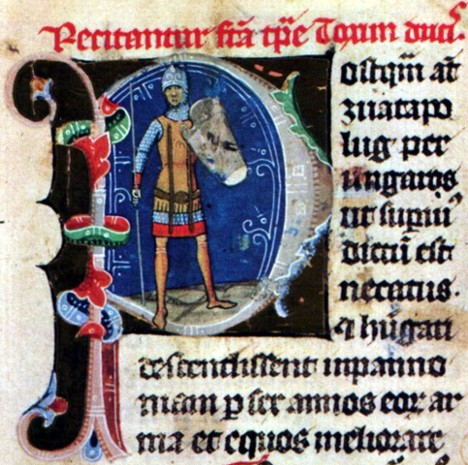 Recitantur fc̄a tp̄e Toxun duci s
Postq̄m at̄
zuatapo
lug per
ungaros
ut supiu᷑
dictū est
necatus.
⁊ hūgari
descendissent inpanno
niam ꝑ sex annos eoꝝ ar
ma et equos meliorare